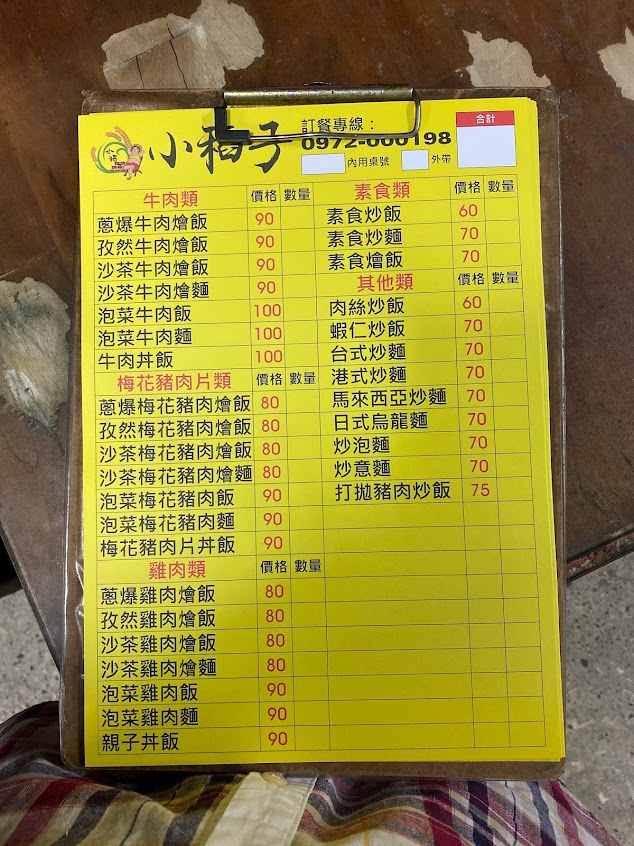 小稻子
訂餐專線：
0972-000198
內用桌號 外帶
合計
牛肉類 價格 數量
蔥爆牛肉燴飯 90
孜然牛肉燴飯 90
沙茶牛肉燴飯 90
沙茶牛肉燴麵 90
泡菜牛肉飯 100
泡菜牛肉麵 100
牛肉丼飯 100
梅花豬肉片類 價格 數量
蔥爆梅花豬肉燴飯 80
孜然梅花豬肉燴飯 80
沙茶梅花豬肉燴飯 80
沙茶梅花豬肉燴麵 80
泡菜梅花豬肉飯 90
泡菜梅花豬肉麵 90
梅花豬肉片丼飯 90
雞肉類 價格 數量
蔥爆雞肉燴飯 80
孜然雞肉燴飯 80
沙茶雞肉燴飯 80
沙茶雞肉燴麵 80
泡菜雞肉飯 90
泡菜雞肉麵 90
親子丼飯 90
素食類 價格 數量
素食炒飯 60
素食炒麵 70
素食燴飯 70
其他類 價格 數量
肉絲炒飯 60
蝦仁炒飯 70
台式炒麵 70
港式炒麵 70
馬來西亞炒麵 70
日式烏龍麵 70
炒泡麵 70
炒意麵 70
打拋豬肉炒飯 75